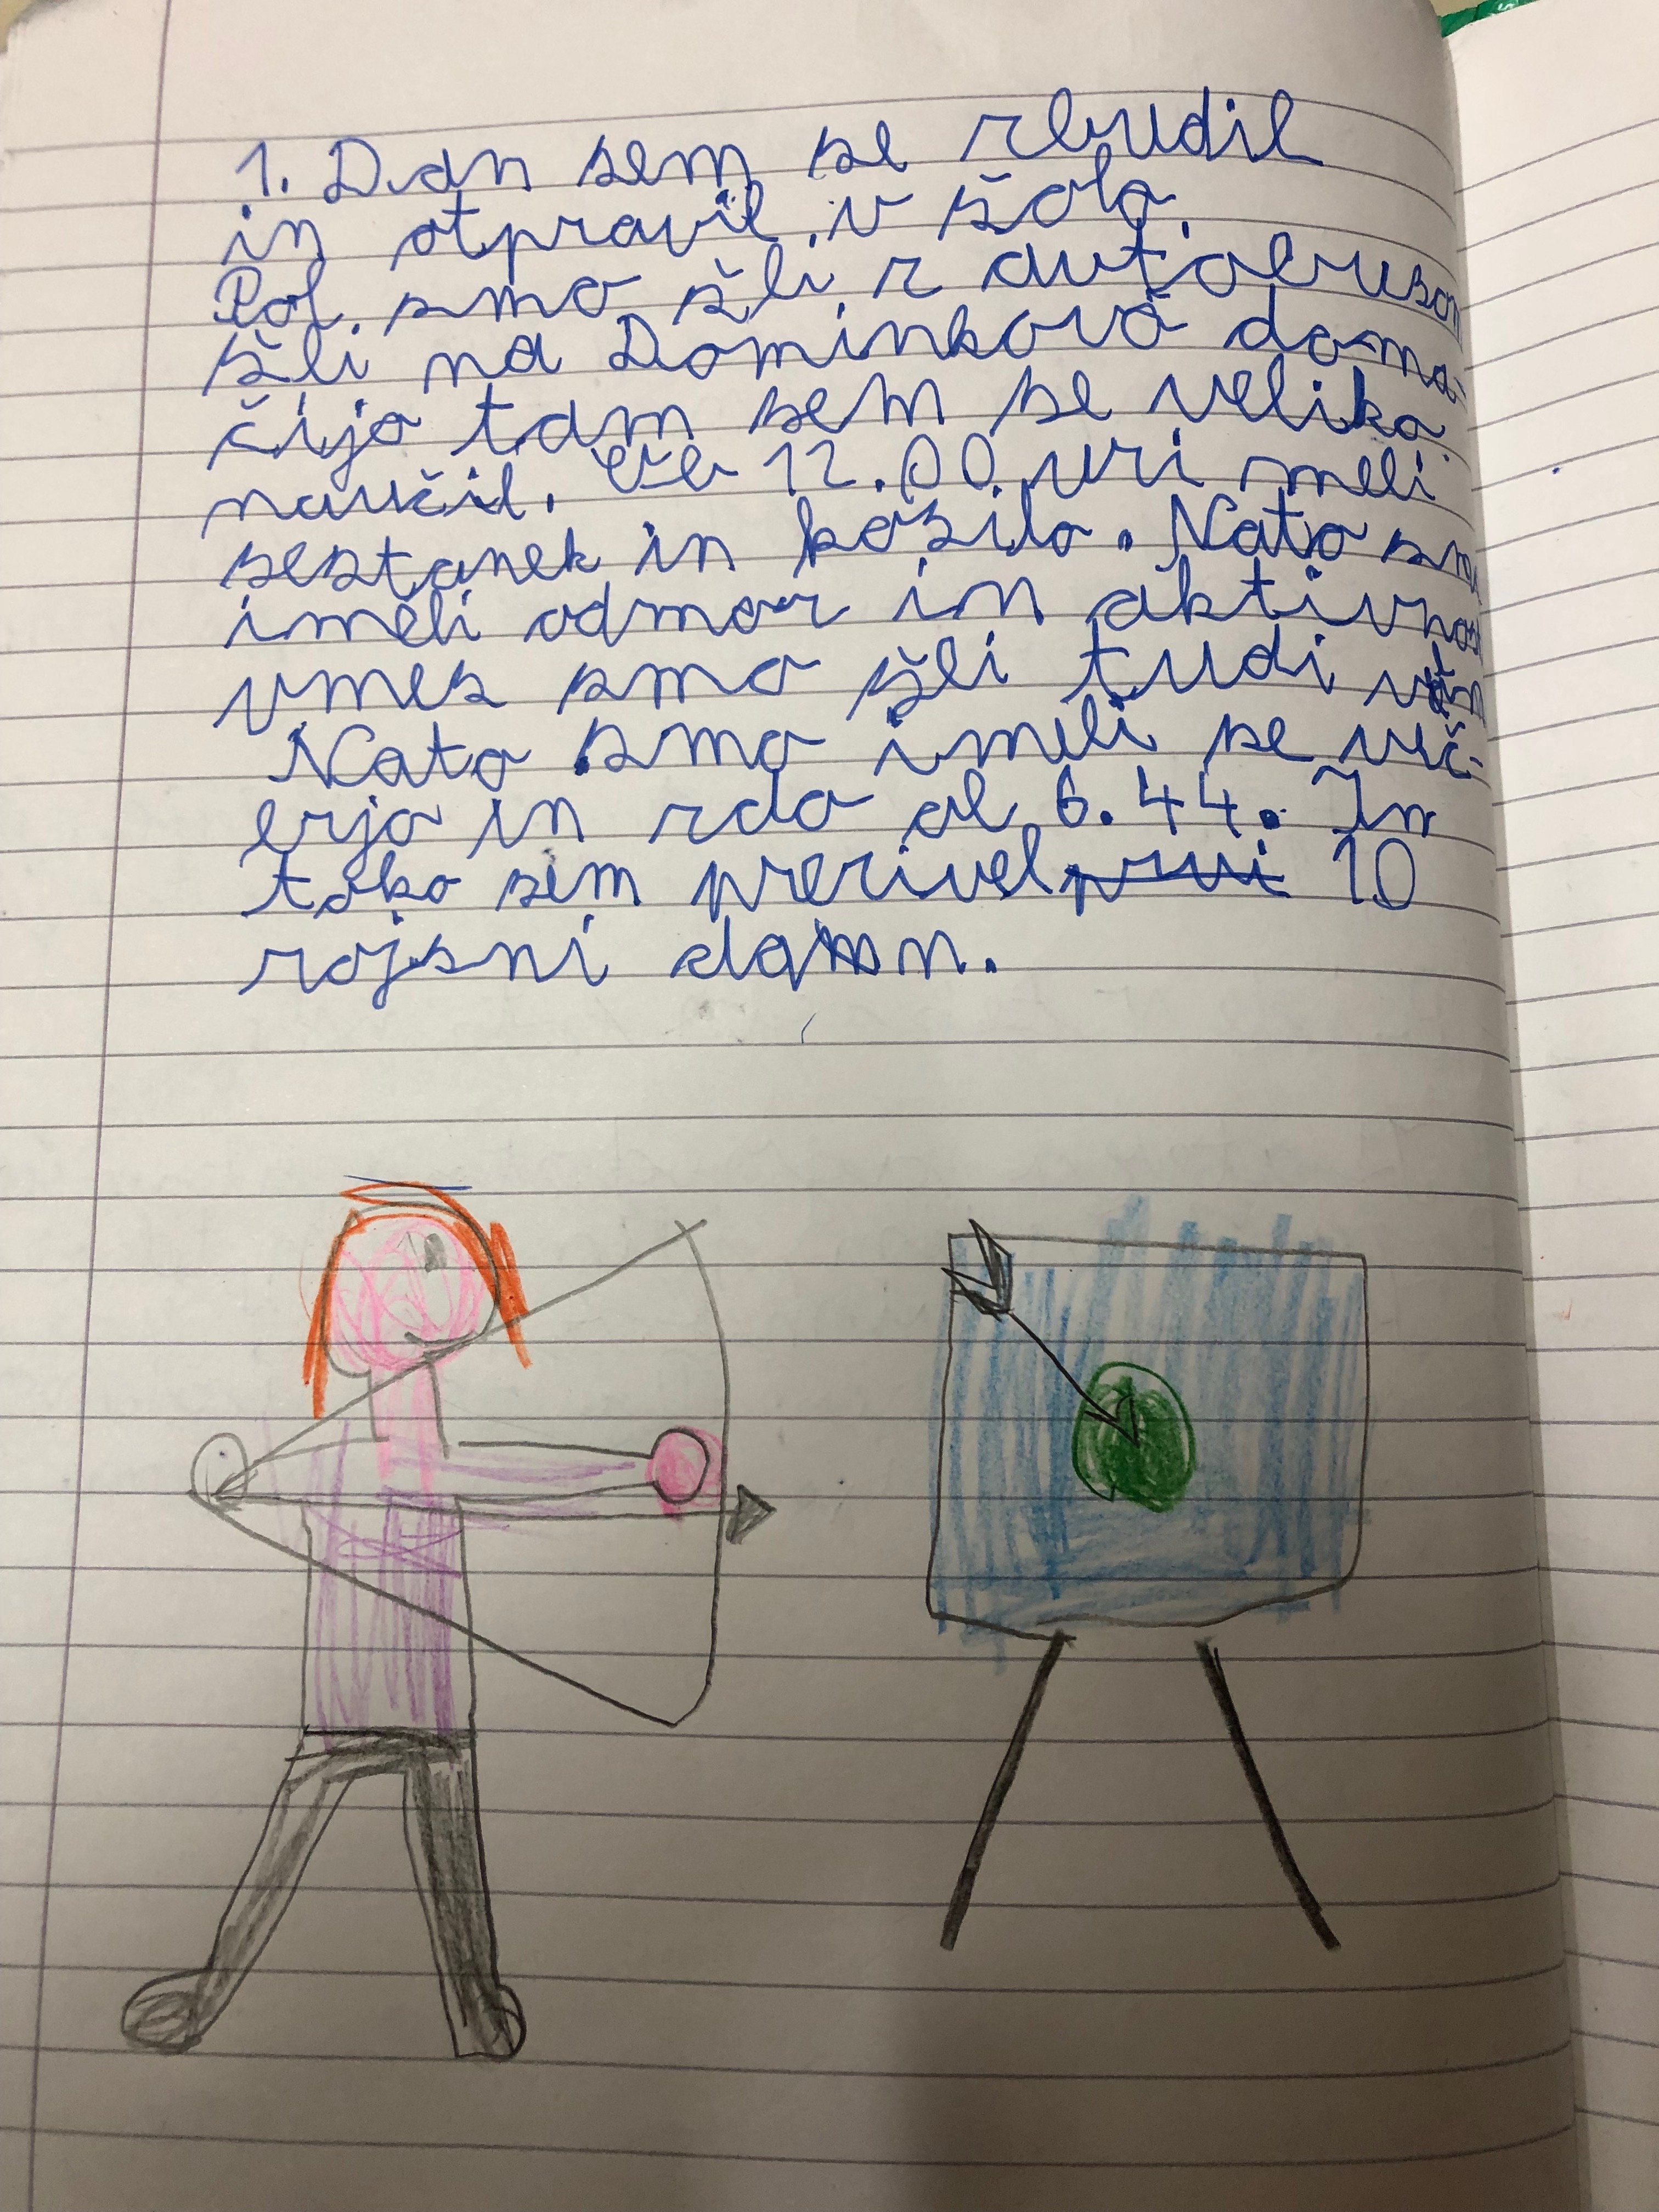 1. Dan sem se zbudil
in otpravil v šolo.
Pol smo šli z autobuson
šli na Dominkovo doma-
čijo tam sem se veliko
naučil. 12.00 uri imeli
sestanek in kosilo. Nato smo
imeli odmor in aktivnost
vmes smo šli tudi
Nato smo imeli se več-
erjo in zdo ob 6.44. In
toko sem prezivel prvi 10
rojsni dan.